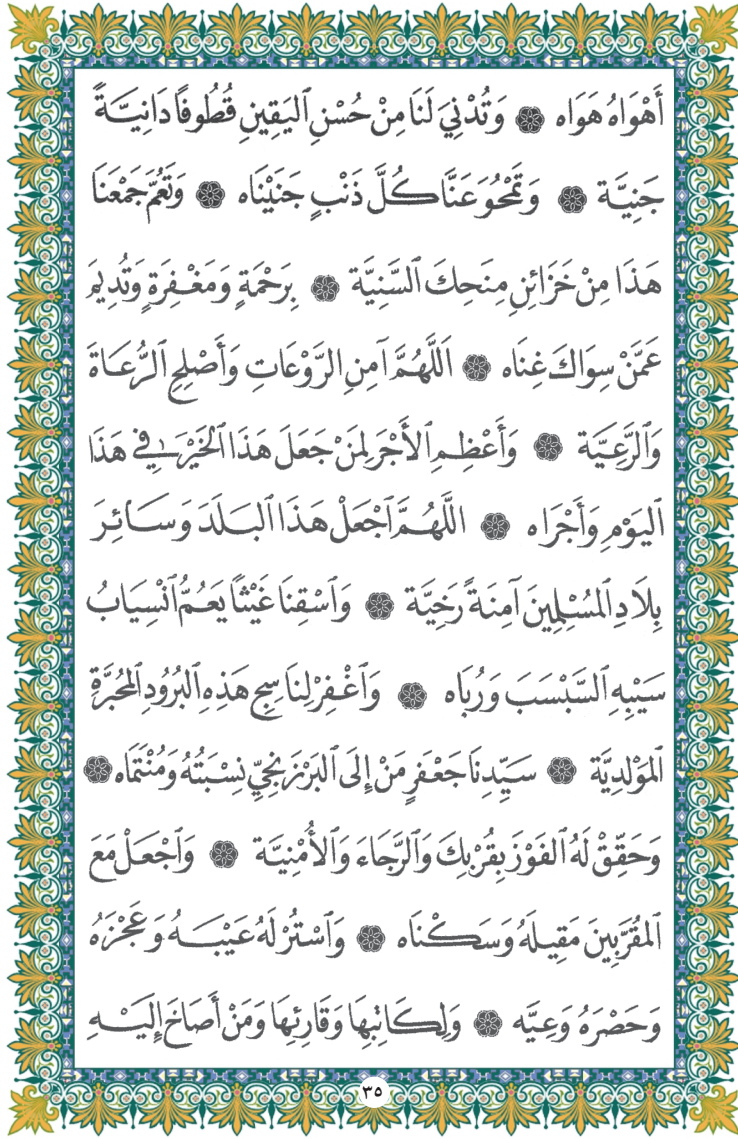 أَهْوَاهُ هَوَاه ۞ وَتُدْنِيَ لَنَا مِنْ حُسْنِ ٱليَقِينِ قُطُوفًا دَانِيَةً
جَنِيَّة ۞ وَتَمْحُوَ عَنَّا كُلَّ ذَنْبٍ جَنَيْنَاه ۞ وَتَعُمَّ جَمْعَنَا
هَذَا مِنْ خَزَائِنِ مِنَحِكَ ٱلسَّنِيَّة ۞ بِرَحْمَةٍ وَمَغْفِرَةٍ وَتُدِيمَ
عَمَّنْ سِوَاكَ غِنَاه ۞ ٱللَّهُمَّ آمِنِ ٱلرَّوْعَاتِ وَأَصْلِحِ ٱلرُّعَاةَ
وَٱلرَّعِيَّة ۞ وَأَعْظِمِ ٱلأَجْرَ لِمَنْ جَعَلَ هَذَا ٱلخَيْرَ فِي هَذَا
ٱليَوْمِ وَأَجْرَاه ۞ ٱللَّهُمَّ ٱجْعَلْ هَذَا ٱلبَلَدَ وَسَائِرَ
بِلَادِ ٱلمُسْلِمِينَ آمِنَةً رَخِيَّة ۞ وَٱسْقِنَا غَيْثًا يَعُمُّ ٱنْسِيَابُ
سَيْبِهِ ٱلسَّبْسَبَ وَرُبَاه ۞ وَٱغْفِرْ لِنَاسِجِ هَذِهِ ٱلبُرُودِ ٱلمُحَبَّرَةِ
ٱلمَوْلِدِيَّة ۞ سَيِّدِنَا جَعْفَرٍ مَنْ إِلَى ٱلبَرْزَنْجِيِّ نِسْبَتُهُ وَمُنْتَمَاه ۞
وَحَقِّقْ لَهُ ٱلفَوْزَ بِقُرْبِكَ وَٱلرَّجَاءَ وَٱلأُمْنِيَّة ۞ وَٱجْعَلْ مَعَ
ٱلمُقَرَّبِينَ مَقِيلَهُ وَسَكْنَاه ۞ وَٱسْتُرْ لَهُ عَيْبَهُ وَعَجْزَهُ
وَحَصْرَهُ وَعِيَّه ۞ وَلِكَاتِبِهَا وَقَارِئِهَا وَمَنْ أَصَاخَ إِلَيْهِ
٣٥